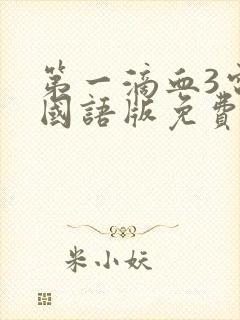 第一滴血3
國語版免費
米小妖